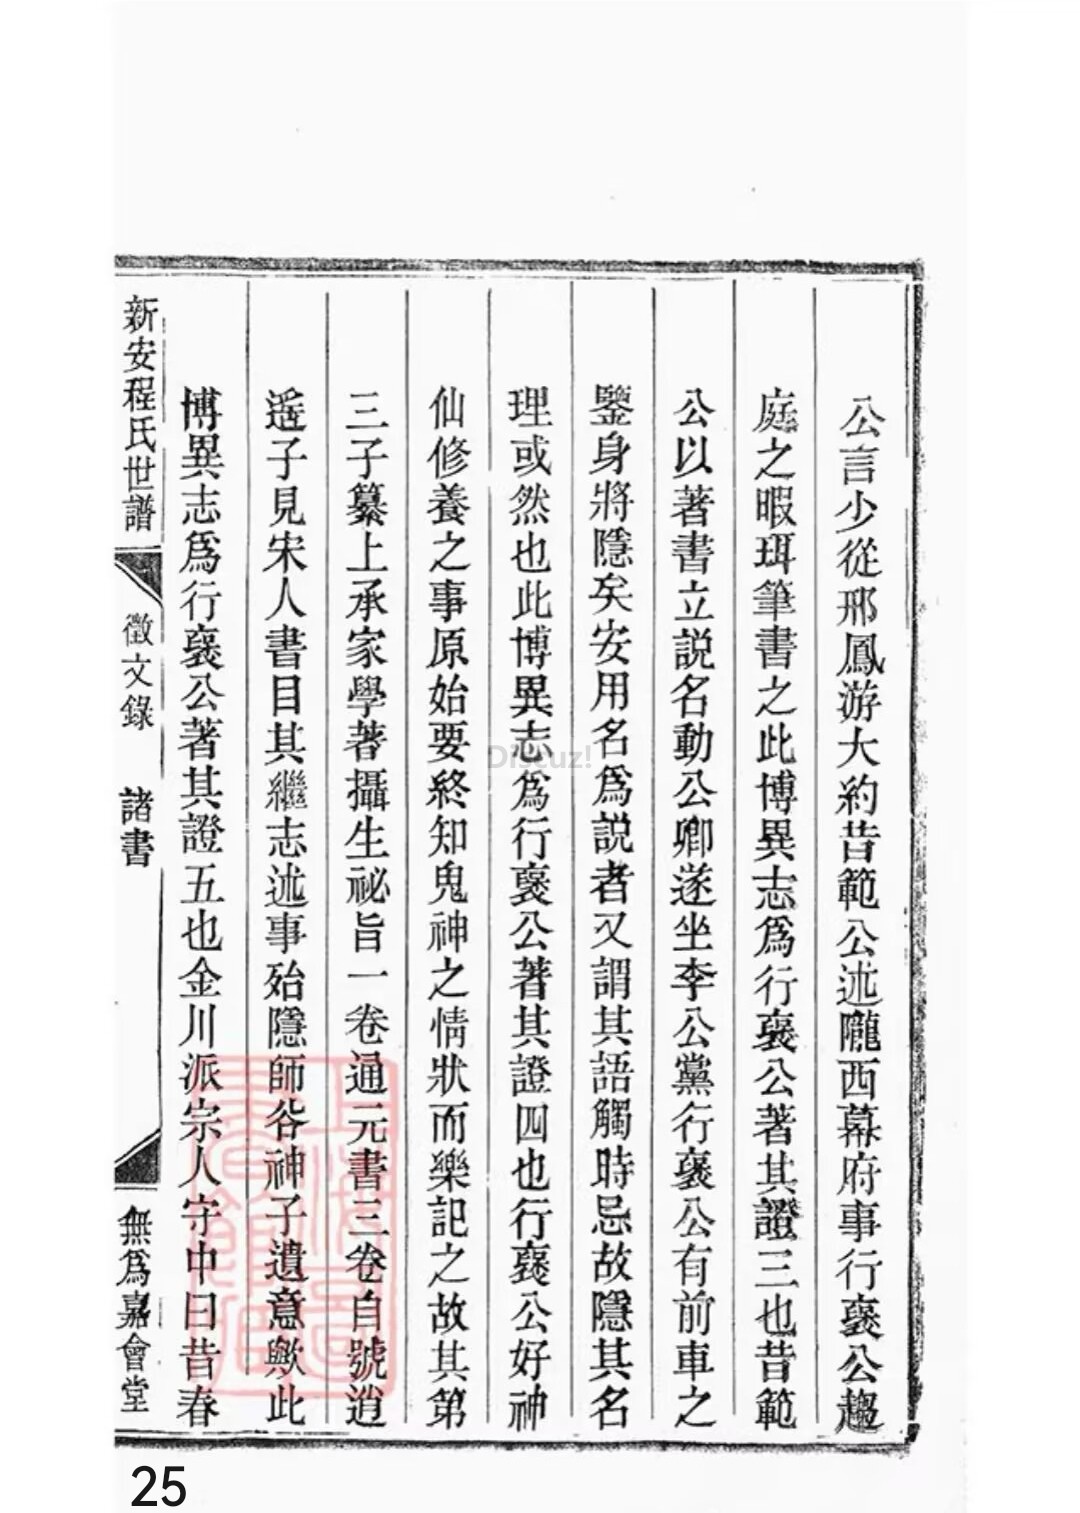 公言少從邢鳳游大約昔範公述隴西幕府事行褒公趨
庭之暇珥筆書之此博異志爲行褒公著其證三也昔範
公以著書立説名動公卿遂坐李公黨行褒公有前車之
鑒身將隱矣安用名爲説者又謂其語觸時忌故隱其名
理或然也此博異志爲行褒公著其證四也行褒公好神
仙修養之事原始要終知鬼神之情狀而樂記之故其第
三子纂上承家學著攝生祕旨一卷通元書三卷自號逍
遥子見宋人書目其繼志述事殆隱師谷神子遺意歟此
博異志爲行褒公著其證五也金川派宗人守中曰昔春
新安程氏世譜
徵文錄
諸書
無爲嘉會堂
Discuz!
25